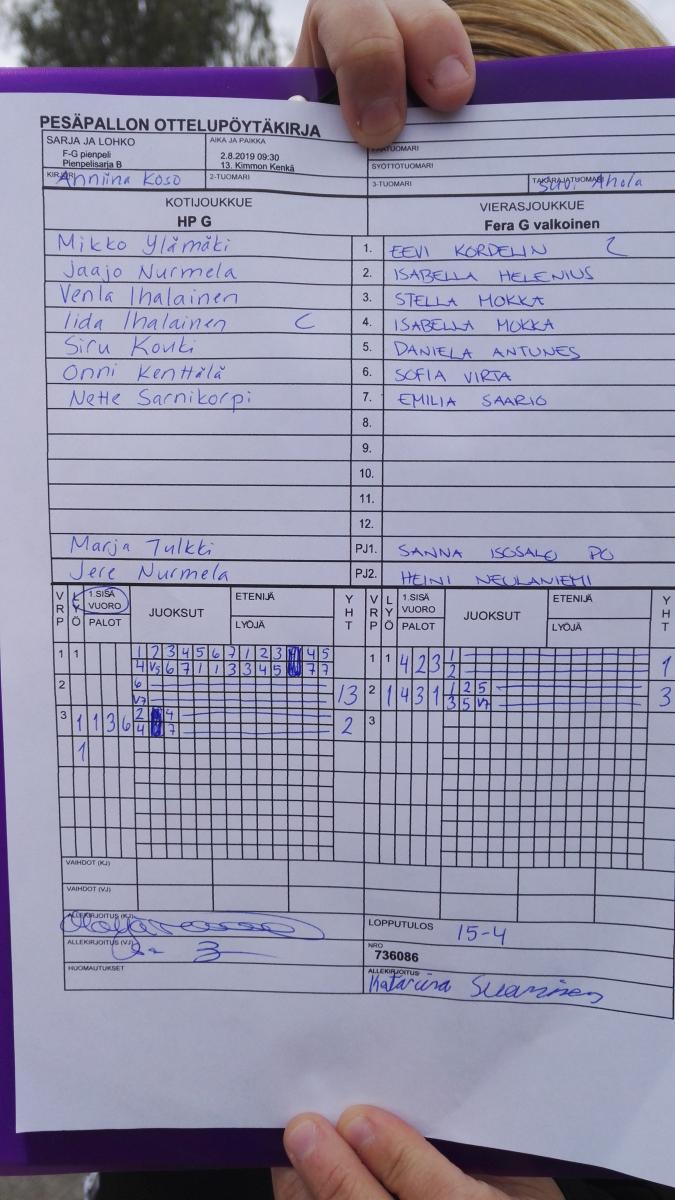 PESÄPALLON OTTELUPÖYTÄKIRJA
SARJA JA LOHKO
F-G pienpeli
Pienpelisarja B
AIKA JA PAIKKA
2.8.2019 09:30
13. Kimmon Kenkä
SYÖTTÖTUOMARI
Anniina Koso
2-TUOMARI
3-TUOMARI
TAKARAJATUOMARI
Suvi Ahola
KOTIJOUKKUE
HP G
VIERASJOUKKUE
Fera G valkoinen
Mikko Ylämäki 1. EEVI KORDELIN C
Jaajo Nurmela 2. ISABELLA HELENIUS
Venla Ihalainen 3. STELLA MOKKA
Iida Ihalainen C 4. ISABELLA MOKKA
Siru Kouki 5. DANIELA ANTUNES
Onni Kenttälä 6. SOFIA VIRTA
Nette Sarnikorpi 7. EMILIA SAARIO
8.
9.
10.
11.
12.
Marja Tulkki PJ1. SANNA ISOSALO PO
Jere Nurmela PJ2. HEINI NEULANIEMI
VRP LYÖ 1.SISÄ VUORO PALOT JUOKSUT ETENIJÄ LYÖJÄ YHT VRP LYÖ 1.SISÄ VUORO PALOT JUOKSUT ETENIJÄ LYÖJÄ YHT
1 1 1 2 3 4 5 6 7 1 2 3 4 5 1 1 4 2 3 1
4 V5 6 7 1 1 3 3 4 5 7 7 2 1
2 6 2 1 4 3 1 1 2 5
V7 13 3 5 V7 3
3 1 1 3 6 2 4 3
4 7 2
1
VAIHDOT (KJ)
VAIHDOT (VJ)
ALLEKIRJOITUS (KJ)
ALLEKIRJOITUS (VJ)
HUOMAUTUKSET
LOPPUTULOS 15-4
NRO
736086
ALLEKIRJOITUS
Katariina Suaninen